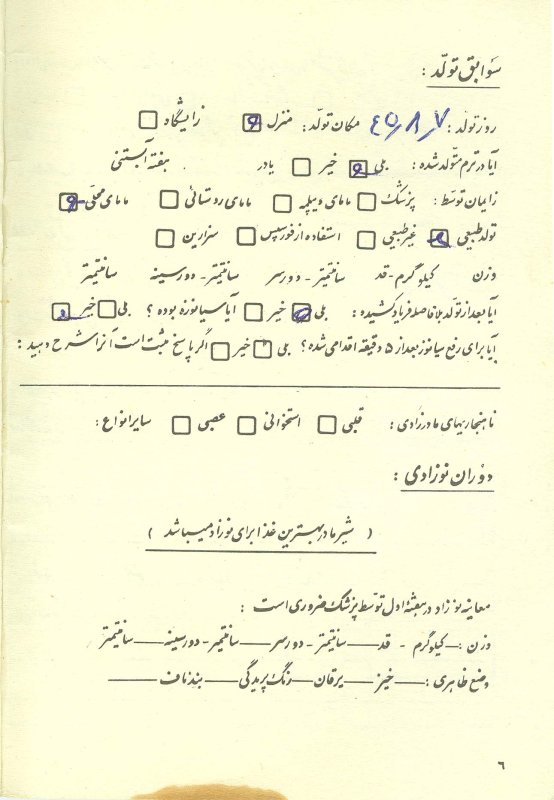 سوابق تولّد :
روز تولّد : ۷ / ۸ / ۴۵ مکان تولّد : منزل زایشگاه
آیا در ترم متولّد شده : بلی خیر یا در هفته آبستنی
زایمان توسّط : پزشک مامای دیپلمه مامای روستائی مامای محلّی
تولد طبیعی غیر طبیعی استفاده از فورسپس سزارین
وزن کیلوگرم - قد سانتیمتر - دور سر سانتیمتر - دور سینه سانتیمتر
آیا بعد از تولّد بلافاصله فریاد کشیده : بلی خیر آیا سیانوزه بوده ؟ بلی خیر
آیا برای رفع سیانوز بعد از ۵ دقیقه اقدامی شده ؟ بلی خیر اگر پاسخ مثبت است آنرا شرح دهید :
ناهنجاریهای مادرزادی : قلبی استخوانی عصبی سایر انواع :
دوران نوزادی :
( شیر مادر بهترین غذا برای نوزاد میباشد )
معاینه نوزاد در هفته اول توسّط پزشک ضروری است :
وزن : — کیلوگرم - قد — سانتیمتر - دور سر — سانتیمتر - دور سینه — سانتیمتر
وضع ظاهری : — خیز — یرقان — رنگ پریدگی — بند ناف —
۶